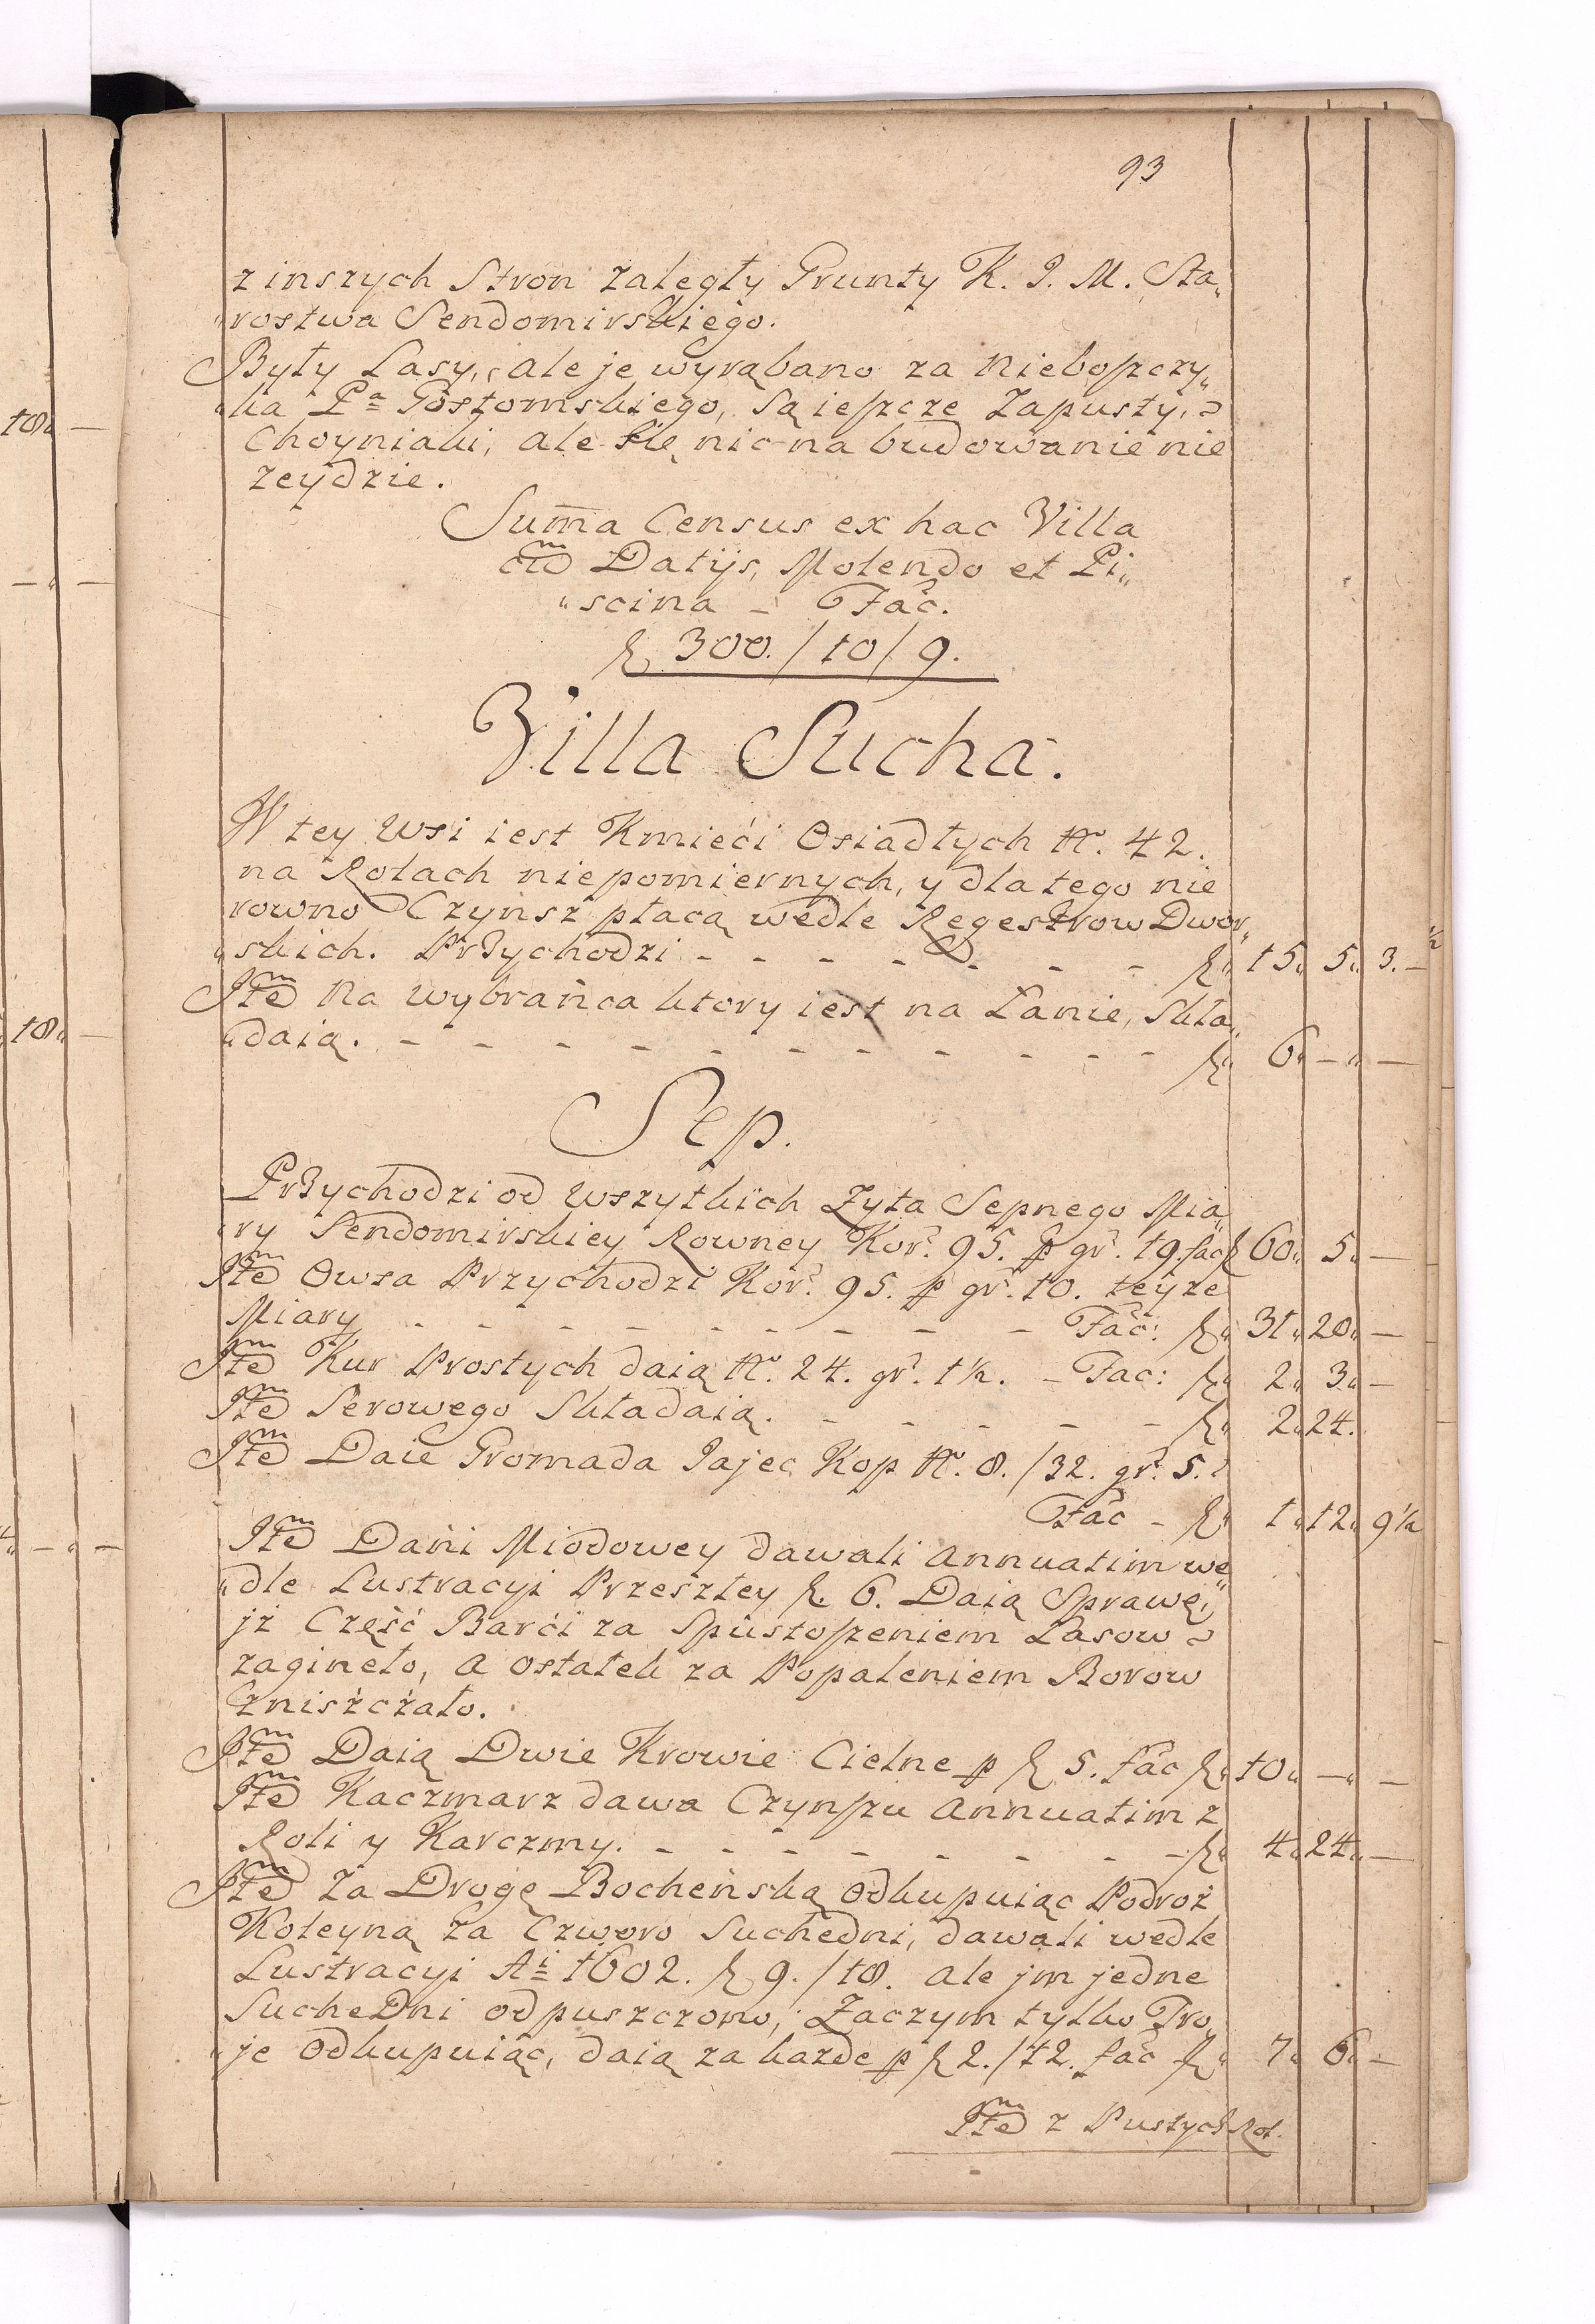 93
z inszych Stron zaległy Grunty K. J. M. Sta„
„rostwa Sendomirskiego.
Były Lasy, ale je wyrąbano za Niebosczy„
„ka Pa Gostomskiego, Są iescze Zapusty,
Choyniaki, ale się nic na budowanie nie
zeydzie.
Suma Census ex hac Villa
cum Datijs, Molendo et Pi„
„scina - Fac.
fl 300./10/9.
Villa Sucha.
W tey Wsi iest Kmieći Osiadłych Nr. 42.
na Rolach niepomiernych, y dla tego nie
rowno Czynsz płacą wedle Regestrow Dwor„
„skich. Przychodzi - - - - - - - fl„ 15„ 5„ 3.- ½
Item Na Wybrańca ktory iest na Łanie, Skła„
„daią. - - - - - - - - - - - fl„ 6„ -„ -
Sep.
Przychodzi od Wszytkich Zyta Sepnego Mia„
„ry Sendomirskiey Rowney Kor. 95. p gr. 19. fac fl 60„ 5„ -
Item Owsa Przychodzi Kor. 95. p gr. 10. teyze
Miary - - - - - - - - - Fac: fl„ 31„ 20„ -
Item Kur Prostych daią Nr. 24. gr. 1½. - Fac: fl„ 2„ 3„ -
Item Serowego Składaią. - - - - - fl„ 2„ 24.
Item Daie Gromada Jajec Kop Nr. 8./32. gr. 5.
Fac - fl„ 1„ 12„ 9½
Item Dani Miodowey dawali Annuatim we„
„dle Lustracyi Przeszłey fl. 6. Daią Sprawę,
jż Część Barći za Spustoszeniem Lasow
zagineło, a Ostatek za Popaleniem Borow
Zniszczało.
Item Daią Dwie Krowie Cielne p fl 5. fac fl„ 10„ -„ -
Item Kaczmarz dawa Czynszu Annuatim z
Roli y Karczmy. - - - - - - - fl„ 4„ 24„ -
Item Za Drogę Bocheńską Odkupuiąc Podroż
Koleyną za Czworo Suchedni, dawali wedle
Lustracyi Ai 1602. fl 9./18. Ale jm jedne
SucheDni odpuszczono, Zaczym tylko Tro„
„je Odkupuiąc, daią za kazde p fl 2./12. fac fl„ 7„ 6„ -
Item z Pustych Rol.
18„ -
-„ -
18„ -
-„ -